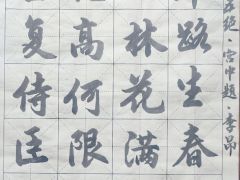 五绝·宫中题·李昂
路生春
林花满
高何限
复侍臣